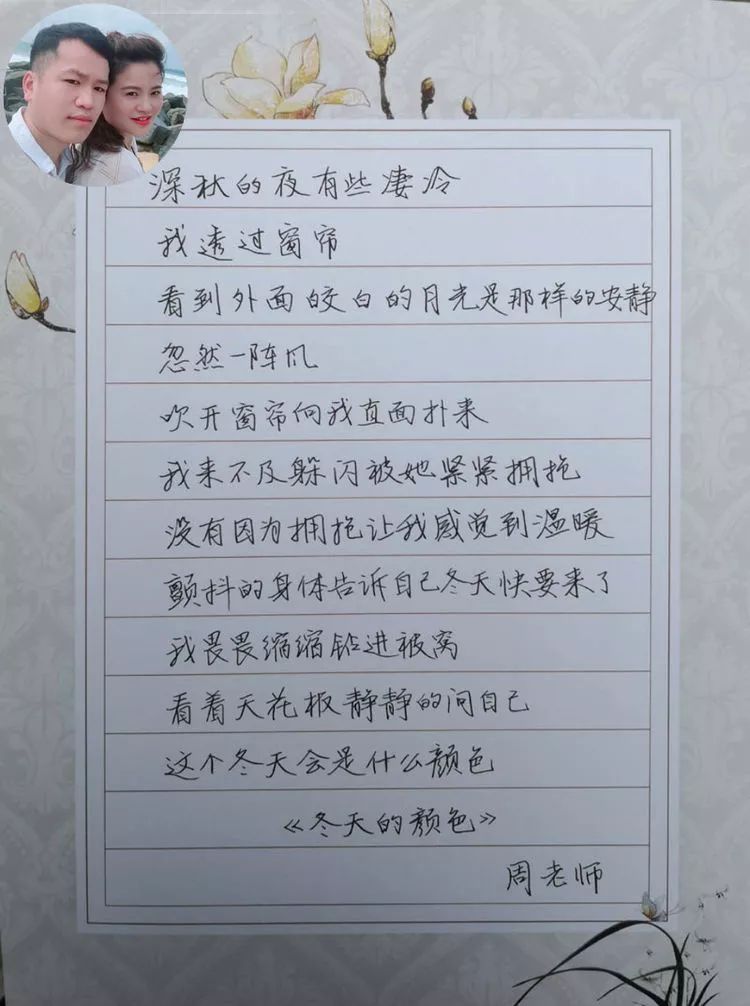 深秋的夜有些凄冷
我透过窗帘
看到外面皎白的月光是那样的安静
忽然一阵风
吹开窗帘向我直面扑来
我来不及躲闪被她紧紧拥抱
没有因为拥抱让我感觉到温暖
颤抖的身体告诉自己冬天快要来了
我畏畏缩缩钻进被窝
看着天花板静静的问自己
这个冬天会是什么颜色
《冬天的颜色》
周老师